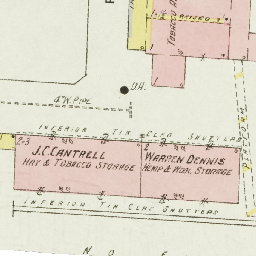 TOBACCO
D.H.
4" W. PIPE
INTERIOR TIN CLAD SHUTTERS
2-3
2
J.C. CANTRELL
HAY & TOBACCO STORAGE
WARREN DENNIS
HEMP & WOOL STORAGE
PLATFORM
INTERIOR TIN CLAD SHUTTERS